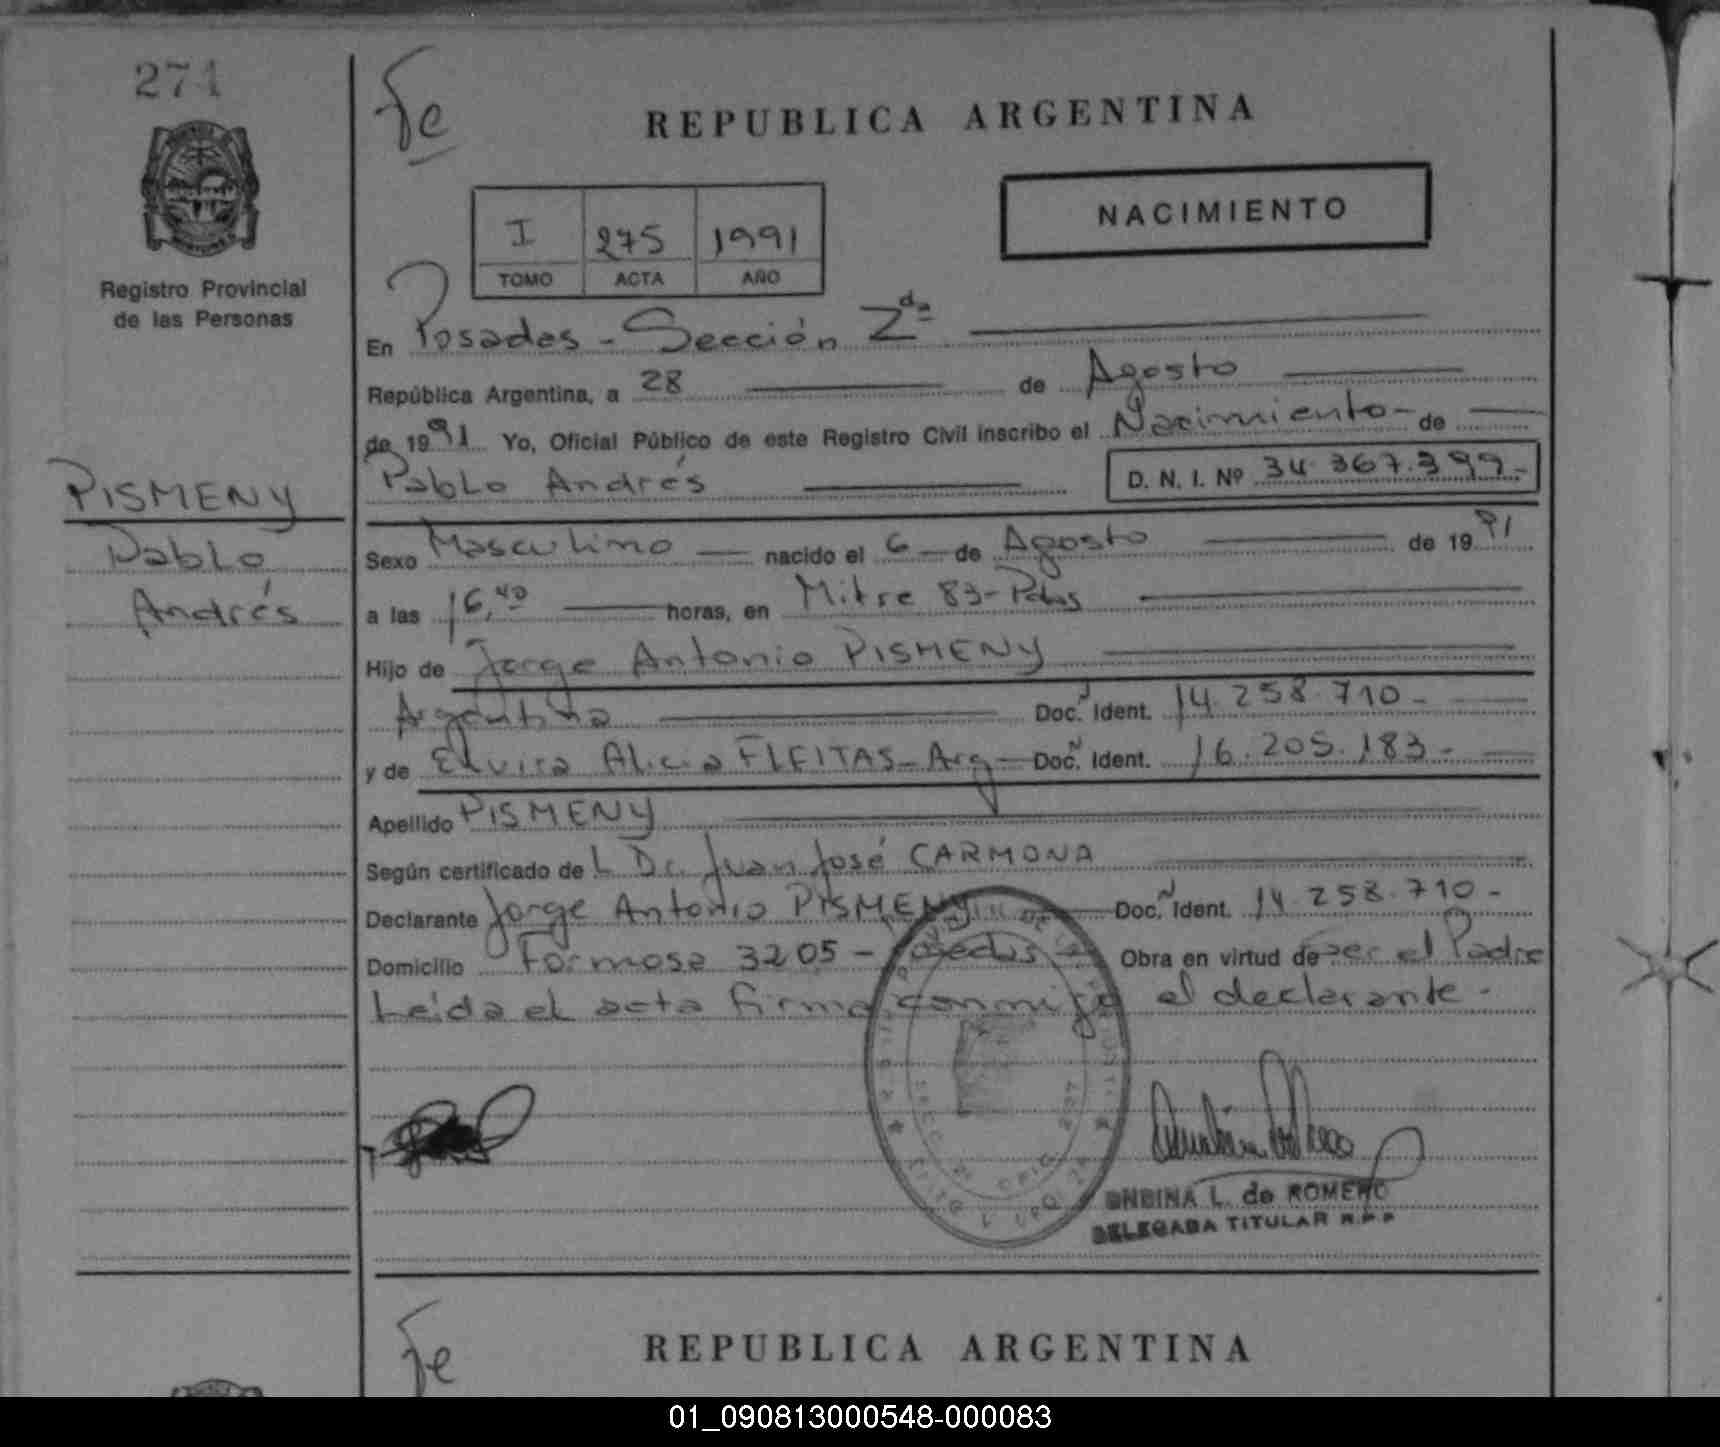 274
Fe
REPUBLICA ARGENTINA
NACIMIENTO
I 275 1991
TOMO ACTA AÑO
Registro Provincial
de las Personas
En Posadas - Sección 2da
República Argentina, a 28 de Agosto
de 1991 Yo, Oficial Público de este Registro Civil inscribo el Nacimiento - de
Pablo Andrés D. N. I. Nº 34.367.399-
PISMENY
Pablo
Andrés
Sexo Masculino nacido el 6 de Agosto de 1991
a las 16,40 horas, en Mitre 83-Pdas
Hijo de Jorge Antonio PISMENY
Argentina Doc. Ident. 14.258.710-
y de Elvira Alicia FLEITAS - Arg Doc. Ident. 16.205.183-
Apellido PISMENY
Según certificado del Dr. Juan José CARMONA
Declarante Jorge Antonio PISMENY Doc. Ident. 14.258.710-
Domicilio Formosa 3205 - Posadas Obra en virtud de ser el Padre
Leída el acta firma conmigo el declarante.
L. de ROMERO
DELEGADA TITULAR R.P.P
Fe
REPUBLICA ARGENTINA
01_090813000548-000083